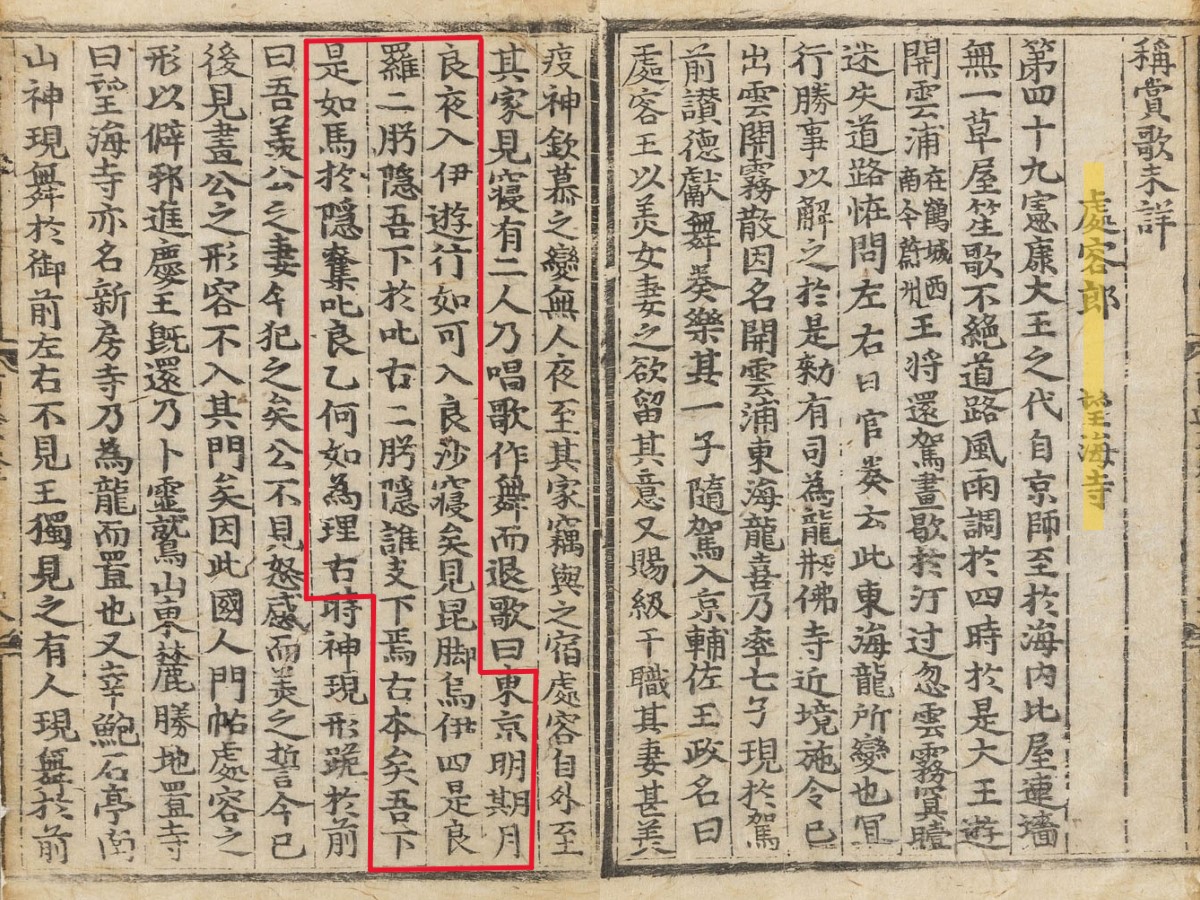 稱賞歌未詳
處容郎 望海寺
第四十九憲康大王之代自京師至於海内比屋連墻
無一草屋笙歌不絶道路風雨調於四時於是大王遊
開雲浦在鶴城西南今蔚州王將還駕晝歇於汀过忽雲霧冥曀
迷失道路怪問左右日官奏云此東海龍所變也冝
行勝事以解之於是勑有司為龍刱佛寺近境施令已
出雲開霧散因名開雲浦東海龍喜乃率七子現於駕
前讃德獻舞奏樂其一子隨駕入京輔佐王政名曰
處容王以美女妻之欲留其意又賜級干職其妻甚美
疫神欽慕之變無人夜至其家竊與之宿處容自外至
其家見寢有二人乃唱歌作舞而退歌曰東京明期月
良夜入伊遊行如可入良沙寢矣見昆脚烏伊四是良
羅二肹隱吾下於叱古二肹隱誰支下焉古本矣吾下
是如馬於隱奪叱良乙何如為理古時神現形跪於前
曰吾羨公之妻今犯之矣公不見怒感而美之誓今已
後見畫公之形容不入其門矣因此國人門帖處容之
形以僻邪進慶王旣還乃卜靈鷲山東麓勝地置寺
曰望海寺亦名新房寺乃為龍而置也又幸鮑石亭南
山神現舞於御前左右不見王獨見之有人現舞於前